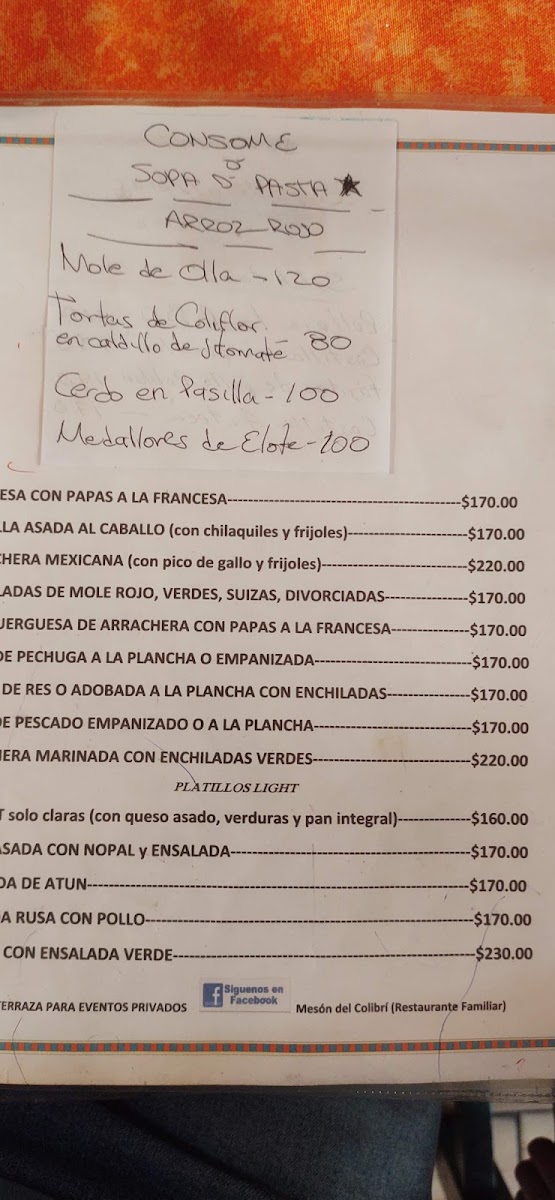 CONSOME
O
SOPA D PASTA ★
ARROZ ROJO
Mole de Olla - 120
Tortas de Coliflor
en caldillo de jitomate - 80
Cerdo en Pasilla - 100
Medallones de Elote - 100
ESA CON PAPAS A LA FRANCESA---$170.00
LLA ASADA AL CABALLO (con chilaquiles y frijoles)---$170.00
CHERA MEXICANA (con pico de gallo y frijoles)---$220.00
LADAS DE MOLE ROJO, VERDES, SUIZAS, DIVORCIADAS---$170.00
UERGUESA DE ARRACHERA CON PAPAS A LA FRANCESA---$170.00
DE PECHUGA A LA PLANCHA O EMPANIZADA---$170.00
DE RES O ADOBADA A LA PLANCHA CON ENCHILADAS---$170.00
DE PESCADO EMPANIZADO O A LA PLANCHA---$170.00
HERA MARINADA CON ENCHILADAS VERDES---$220.00
PLATILLOS LIGHT
T solo claras (con queso asado, verduras y pan integral)---$160.00
ASADA CON NOPAL y ENSALADA---$170.00
DA DE ATUN---$170.00
A RUSA CON POLLO---$170.00
CON ENSALADA VERDE---$230.00
TERRAZA PARA EVENTOS PRIVADOS
f Siguenos en
Facebook
Mesón del Colibrí (Restaurante Familiar)